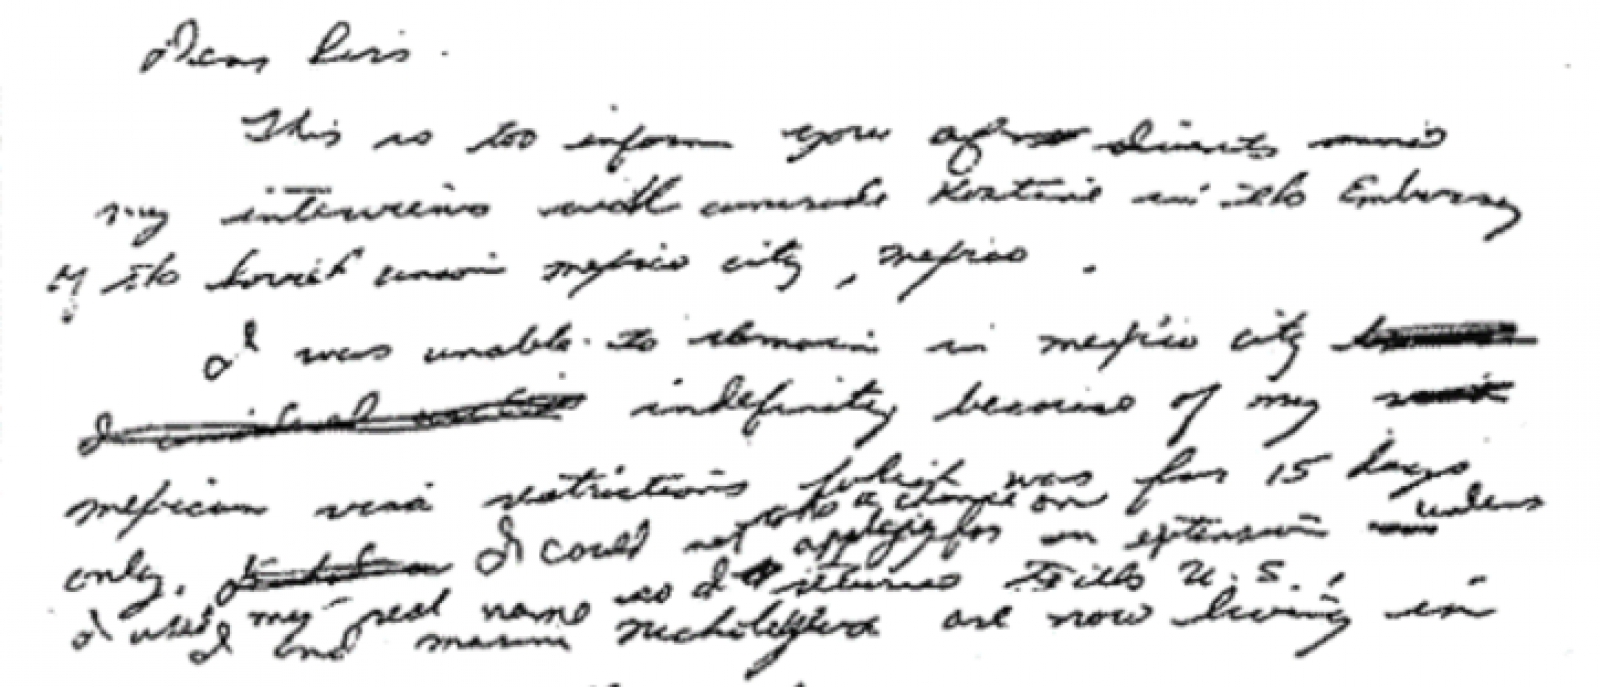 Dear Sirs.
This is too inform you of events since
my interview with comrade Kostine in the Embassy
of the Soviet union mexico city, mexico.
I was unable to remain in mexico city
indefinity because of my
mexican visa restrictions which was for 15 days
only. I could not take a chance on applying for an extension unless
I used my real name so I returned to the U.S.
I and marina nicholeyeva are now living in